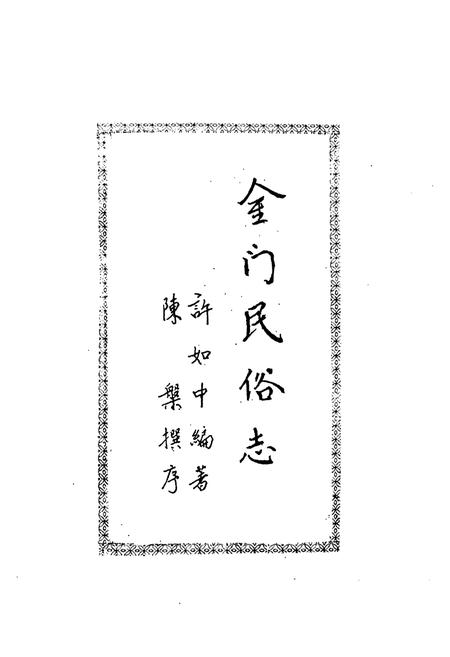 金门民俗志
許如中編著
陳槃撰序